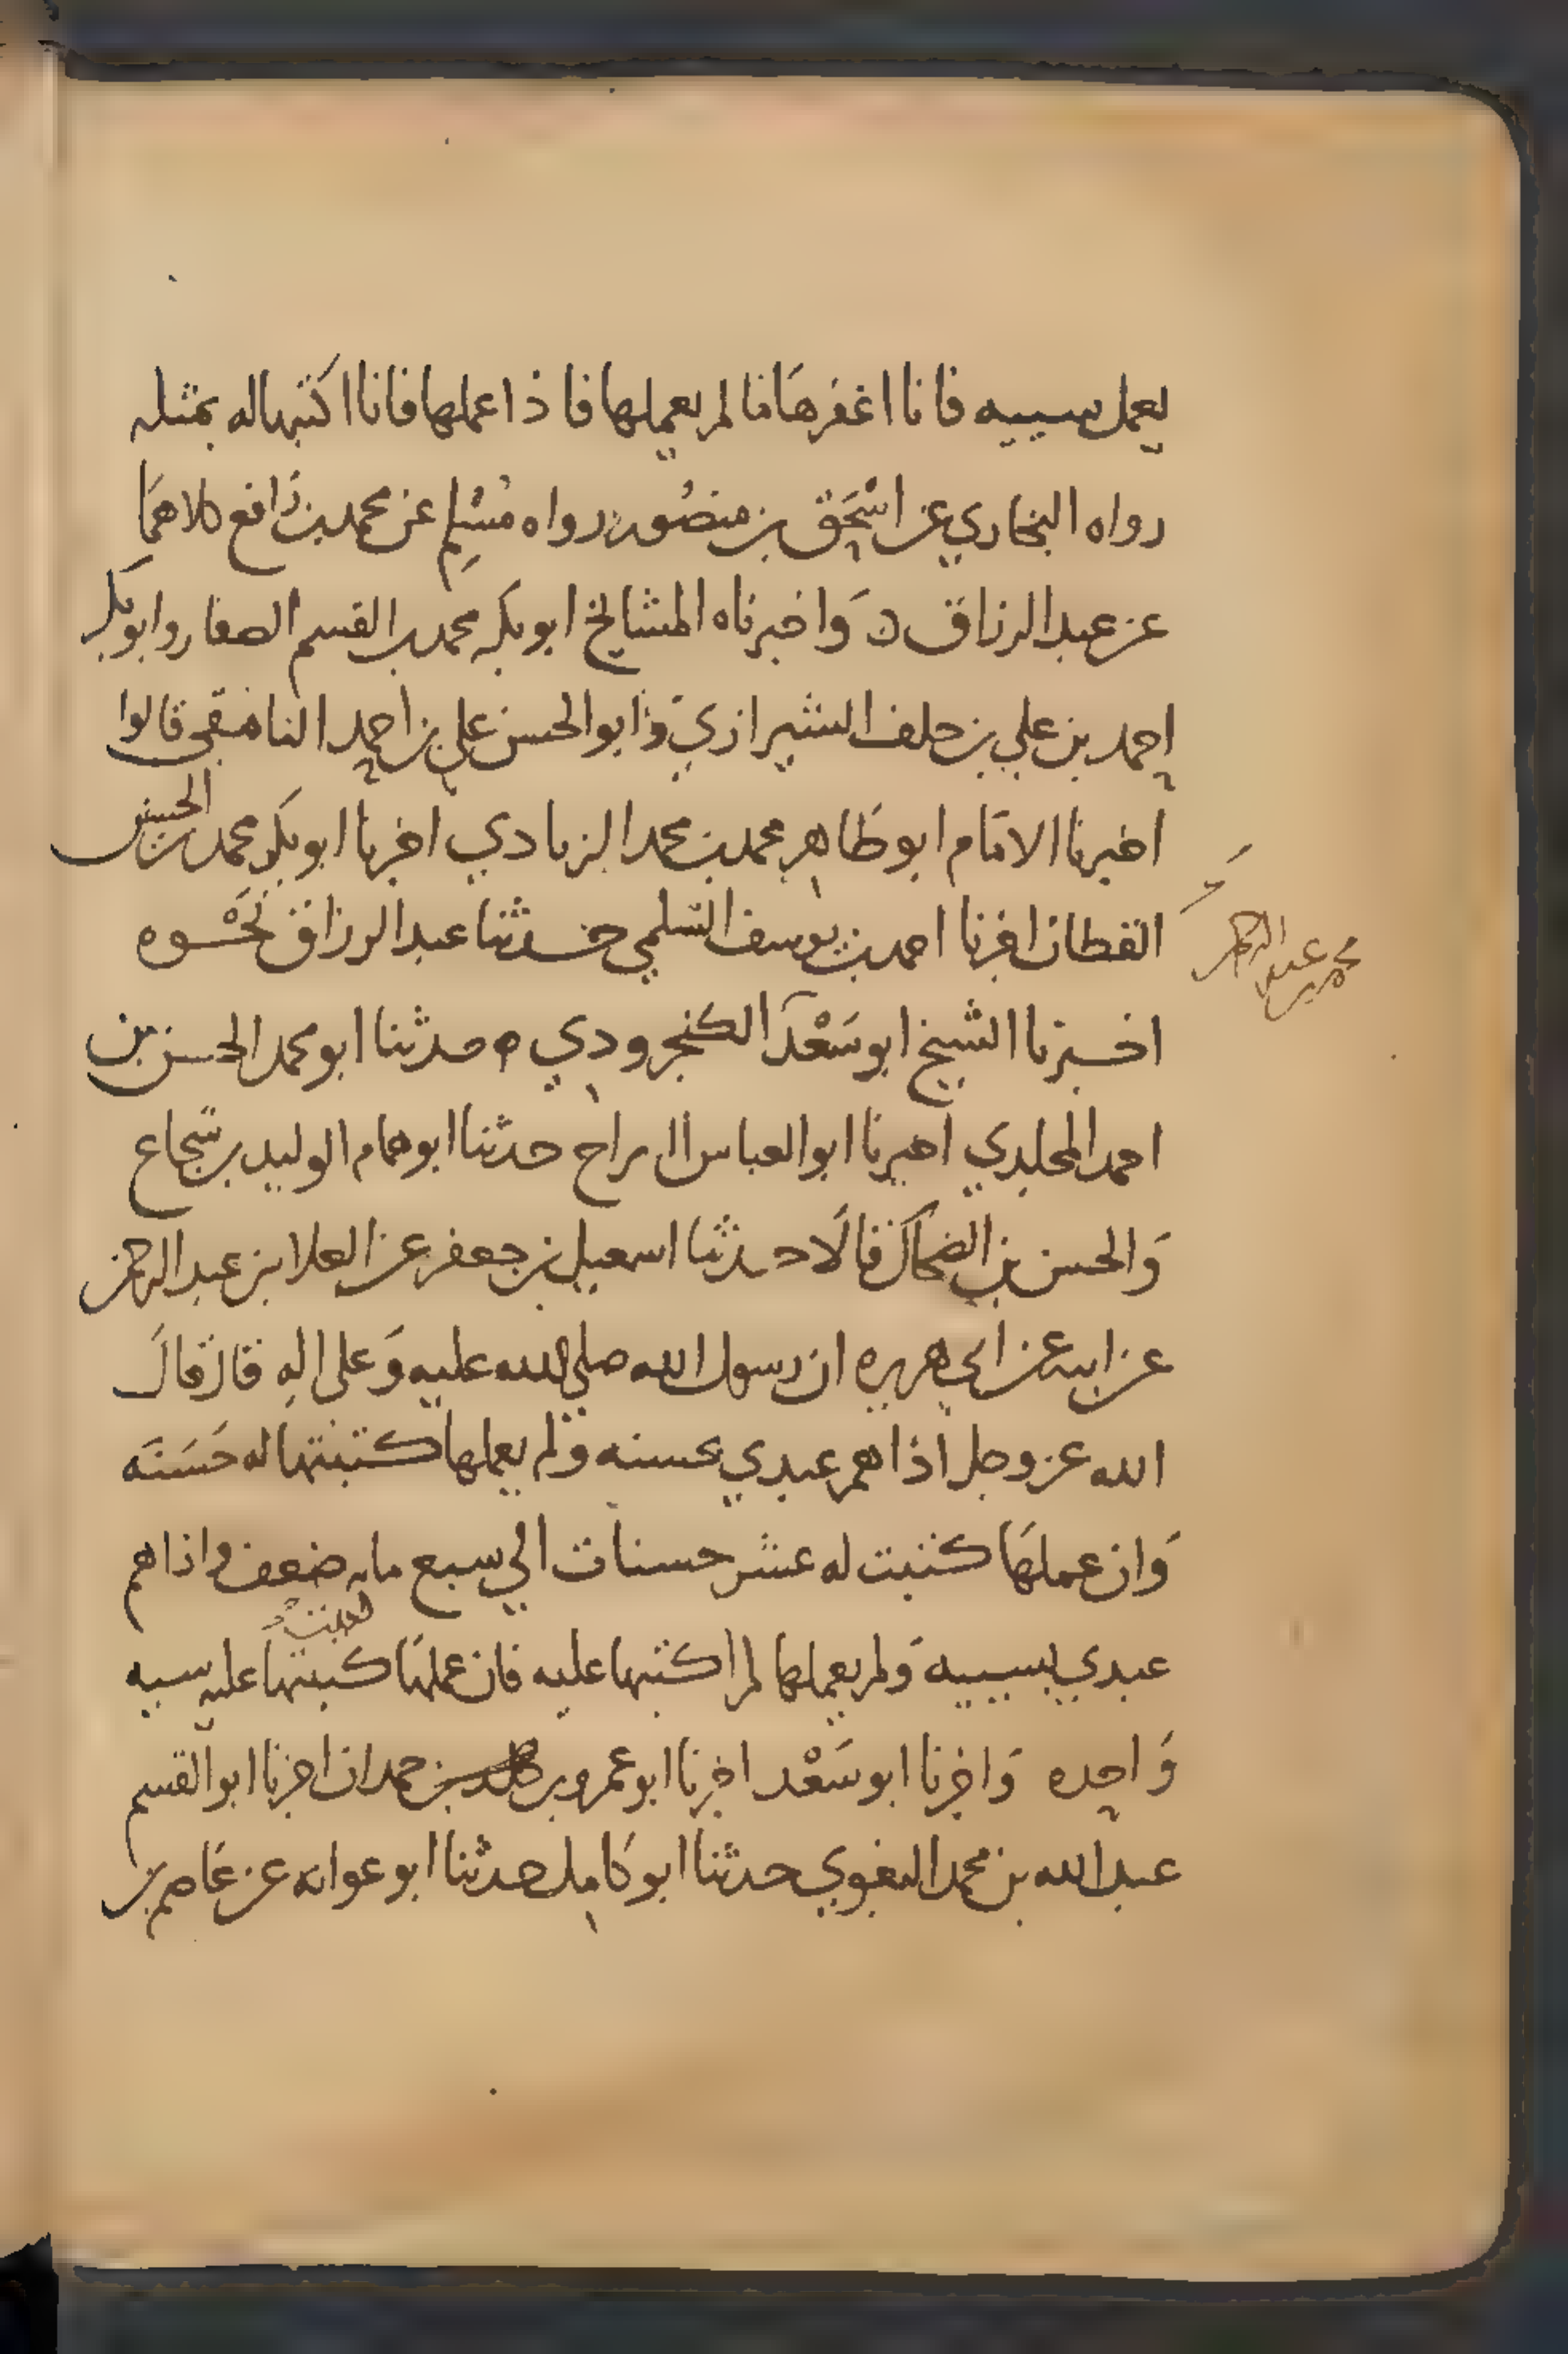 يعمل سييه فانا اغفرها ما لم يعملها فاذا عملها فانا اكتبها له بمثله
رواه البخاري عن اسحق بن منصور ورواه مسلم عن محمد بن رافع كلاهما
عن عبد الرزاق ه واخبرناه المشايخ ابو بكر محمد بن القسم الصفار وابو بكر
احمد بن علي بن خلف الشيرازي وابو الحسن علي بن احمد قالوا
اخبرنا الامام ابو طاهر محمد بن محمد الزيادي اخبرنا ابو بكر محمد بن الحسين
القطان اخبرنا احمد بن يوسف السلمي حدثنا عبد الرزاق نحوه
اخبرنا الشيخ ابو سعد الكنجرودي ه حدثنا ابو محمد الحسن بن
احمد المخلدي اخبرنا ابو العباس السراج حدثنا ابو همام الوليد بن شجاع
والحسن بن الضحاك قالا حدثنا اسمعيل بن جعفر عن العلا بن عبد الرحمن
عن ابيه عن ابي هريره ان رسول الله صلي الله عليه وعلى اله قال قال
الله عز وجل اذا هم عبدي بحسنه ولم يعملها كتبتها له حسنه
وان عملها كتبت له عشر حسنات الي سبع مايه ضعف واذا هم
عبدي بسييه ولم يعملها لم اكتبها عليه فان عملها كتبتها عليه سيه
واحده واخبرنا ابو سعد اخبرنا ابو عمرو بن حمدان اخبرنا ابو القسم
عبد الله بن محمد البغوي حدثنا ابو كامل حدثنا ابو عوانه عن عاصم بن
محمد بن عبد الرحمن